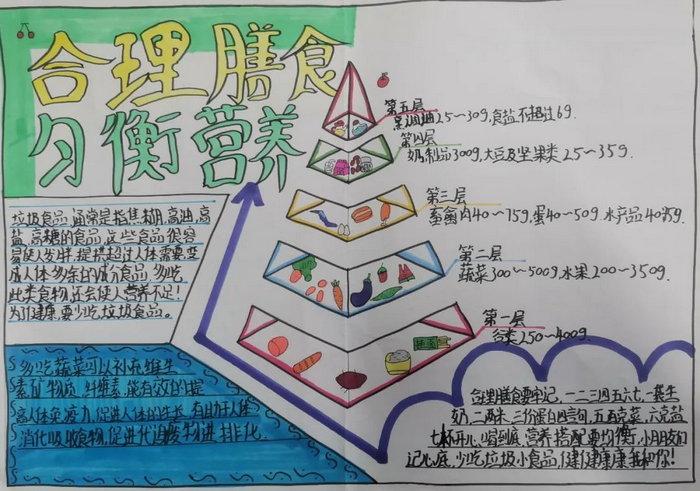 合理膳食
匀衡营养
第五层
烹调油25~30g,食盐不超过6g.
第四层
奶制品300g,大豆及坚果类25~35g.
第三层
畜禽肉40~75g,蛋40~50g水产品40~75g.
第二层
蔬菜300~500g,水果200~350g.
第一层
谷类250~400g.
垃圾食品,通常是指焦糊,高油,高
盐,高糖的食品,这些食品很容
易使人发胖,提供超过人体需要,变
成人体多余的成分食品,多吃
此类食物还会使人营养不足!
为了健康,要少吃垃圾食品。
多吃蔬菜可以补充维生
素矿物质,纤维素,能有效的提
高人体免疫力,促进人体的生长,有助于人体
消化吸收食物,促进代谢废物进排化.
合理膳食要牢记,一二三四五六七,一袋牛
奶,二两米,三份蛋白四言句,五百克菜,六克盐
七杯开水喝到底,营养搭配要均衡,小朋友们
记心底,少吃垃圾小食品,健健康康我和你!